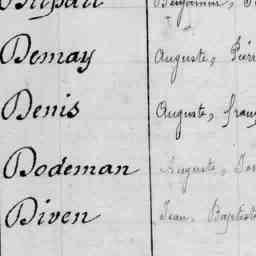 Demay Auguste, Pierr
Denis Auguste, franç
Dodeman Auguste, Jos
Diven Jean, Baptiste